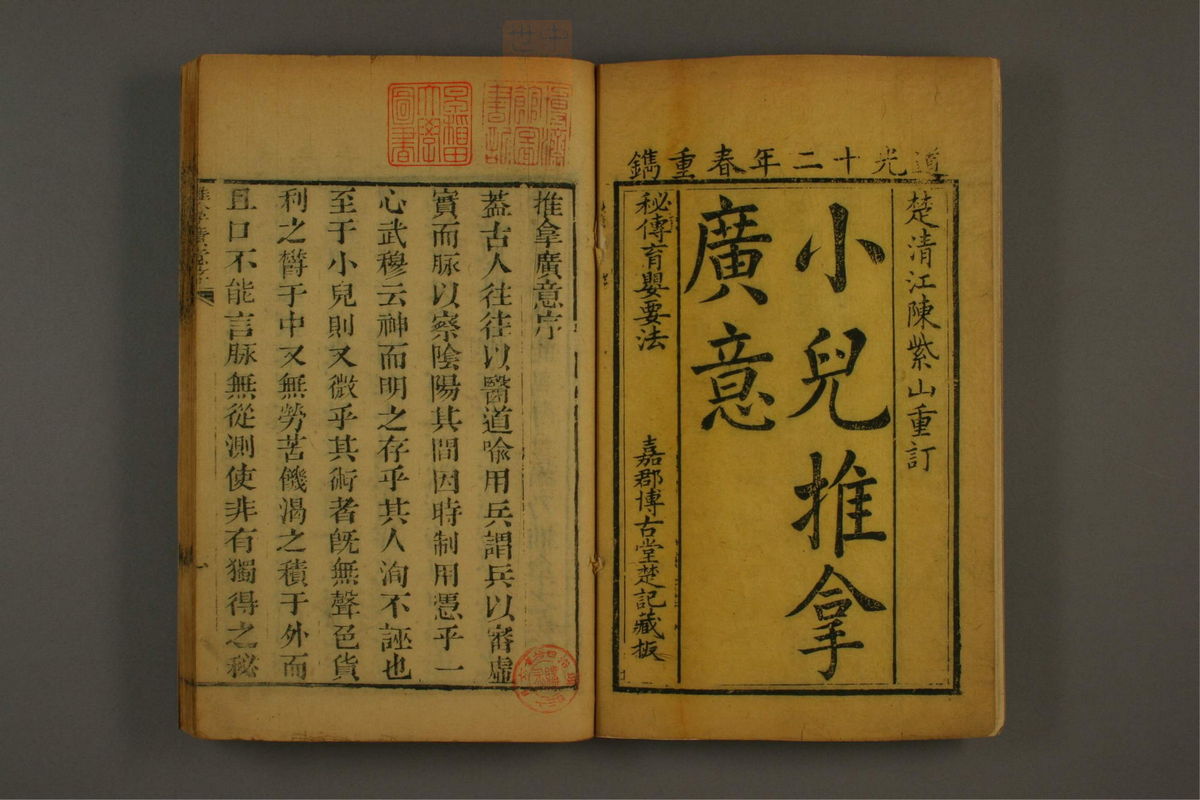 道光十二年春重鐫
楚清江陳紫山重訂
小兒推拿
廣意
秘傳育嬰要法
嘉郡博古堂楚記藏板
推拿廣意序
蓋古人往往以醫道喻用兵謂兵以審虛
實而脈以察陰陽其間因時制用憑乎一
心武穆云神而明之存乎其人洵不誣也
至于小兒則又微乎其術者旣無聲色貨
利之欝于中又無勞苦饑渴之積于外而
且口不能言脈無從測使非有獨得之秘